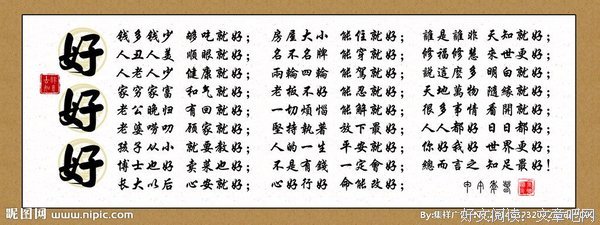 好好好
錢多錢少 夠吃就好; 房屋大小 能住就好; 誰是誰非 天知就好;
人丑人美 順眼就好; 名不名牌 能穿就好; 修福修慧 來世更好;
人老人少 健康就好; 兩輪四輪 能駕就好; 說這麼多 明白就好;
家穷家富 和气就好; 老板不好 能忍就好; 天地萬物 隨緣就好;
老公晚归 有回就好; 一切煩惱 能解就好; 很多事情 看開就好;
老婆唠叨 顾家就好; 堅持執著 放下最好; 人人都好 日日都好;
孩子从小 就要教好; 人的一生 平安就好; 你好我好 世界更好;
博士也好 卖菜也好; 不是有錢 一定會好; 總而言之 知足最好!
长大以后 心安就好; 心好行好 命能改好;
昵图网 www.nipic.com
By:集祥广
好文阅读：文章吧网